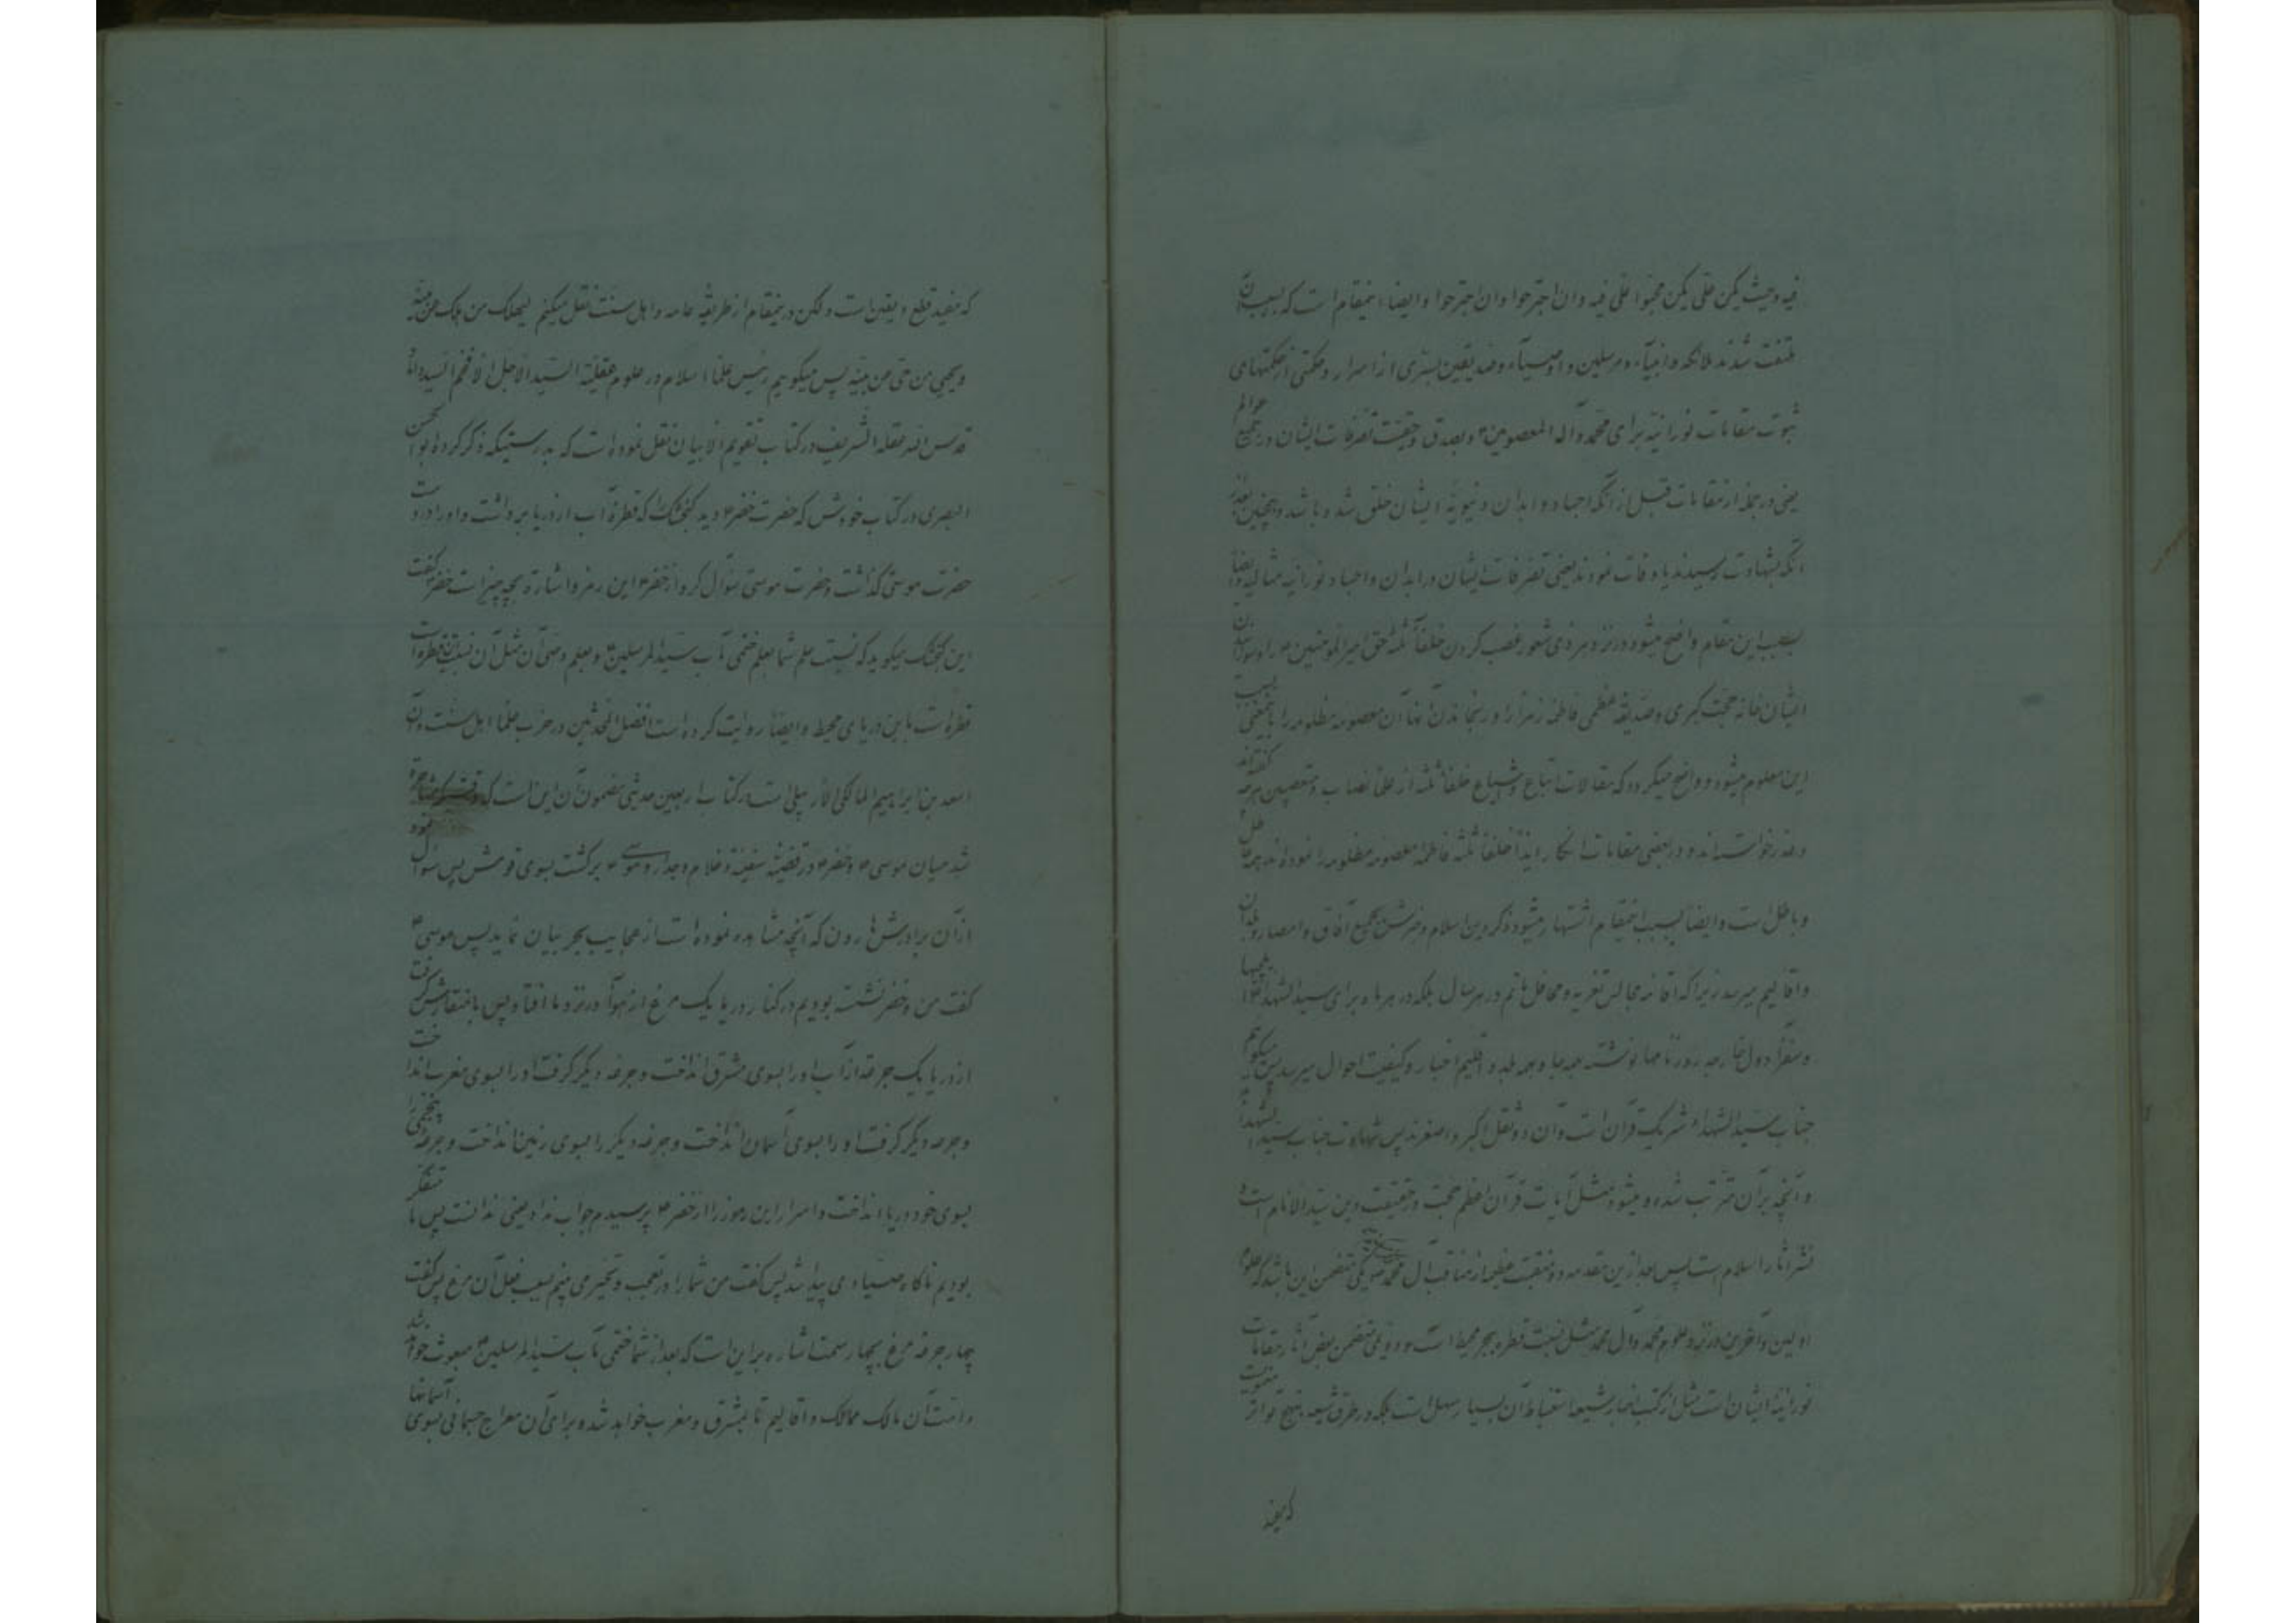 ملتفت شدند ملائکه و انبیاء و مرسلین و اوصیاء و صدیقین بسّری از اسرار و حکمتی از حکمتهای
ثبوت مقامات نورانیه برای محمد و آله المعصومین ۴ و بصدق و حقیقت تصرفات ایشان در جمیع عوالم
یعنی در جمله از مقامات قبل از آنکه اجساد و ابدان دنیویّه ایشان خلق شده باشد و همچنین بعد از
آنکه بشهادت رسیدند یا وفات نمودند یعنی تصرفات ایشان در ابدان و اجساد نورانیه مثالیه و ایضا
بسبب این مقام واضح میشود در نزد هر ذی شعور غصب کردن خلفآء ثلثه حق امیرالمؤمنین ۴ را و سوزانیدن
ایشان خانه حجت کبری و صدیقه عظمی فاطمه زهرا را و رنجاندن آنها آن معصومه مظلومه را
این معلوم میشود و واضح میگردد که مقالات اتباع و اشیاع خلفاء ثلثه از علماء نصاب و متعصبین
و در بعضی مقامات انکار ایذاء خلفاء ثلثه فاطمه معصومه مظلومه را نموده‌اند همه
و باطل است و ایضا بسبب اینمقام اشتهار میشود ذکر دین اسلام و شرع بجمیع آفاق و امصار و بلدان
و اقالیم میرسد زیرا که اقامه مجالس تعزیه و محافل ماتم در هر سال بلکه در هر ماه برای سید الشهداء
و سفراء دول خارجه روزنامها نوشته همه جا و همه بلد و اقلیم اخبار و کیفیت احوال میرسد پس میگویم
جناب سید الشهداء شریک قرآن است و آن دو ثقل اکبر و اصغرند پس شهادت جناب سید الشهداء
و آنچه بر آن مترتب شده و میشود مثل آیات قرآن اعظم حجت در حقیقت دین سید الانام است و
نشر آثار اسلام است پس بعد از این مقدمه دو منقبت عظیمه از مناقب آل محمد ص یکی متضمن این باشد که علوم
اولین و آخرین در نزد علوم محمد و آل محمد مثل نسبت قطره ببحر محیط است و دویمی متضمن بعض آثار مقامات
نورانیه ایشان است مثل از کتب اخبار شیعه استنباط آن بسیار سهل است بلکه در طرق شیعه بنهج تواتر
که مفید
که مفید قطع و یقین است و لکن در اینمقام از طریقه عامه و اهل سنت نقل میکنم لیهلک من هلک عن بینه
و یحیی من حی عن بینه پس میگویم رئیس علماء اسلام در علوم عقلیه السید الاجل الافخم السید داماد
قدس الله عقله الشریف در کتاب تقویم الایمان نقل نموده است که بدرستیکه ذکر کرده ابو الحسن
البصری در کتاب خودش که حضرت خضر ۴ دید گنجشک را که قطره آب از دریا برداشت و او را در دست
حضرت موسی گذاشت و حضرت موسی سؤال کرد از خضر ۴ این رمز و اشاره بچه چیز است خضر ۴ گفت
این گنجشک میگوید که نسبت علم شما بعلم ختمی مآب سید المرسلین ص و بعلم وصی آن مثل آن نسبت این قطره است
قطره است باین دریای محیط و ایضا روایت کرده است افضل المحدثین در حزب علماء اهل سنت و آن
اسعد بن ابراهیم المالکی الاربیلی است در کتاب اربعین حدیثی مضمون آن این است که وقتیکه مشاجره
شد میان موسی ۴ و خضر ۴ در قضیه سفینه و غلام و جدار و موسی ۴ برگشت بسوی قومش پس سؤال نمود
از آن برادرش هارون که آنچه مشاهده نموده است از عجایب بحر بیان نماید پس موسی ۴
گفت من و خضر نشسته بودیم در کنار دریا یک مرغ از هوا در نزد ما افتاد پس با منقارش گرفت
از دریا یک جرعه از آب او را بسوی مشرق انداخت و جرعه دیگر گرفت او را بسوی مغرب انداخت
و جرعه دیگر گرفت او را بسوی آسمان انداخت و جرعه دیگر را بسوی زمین انداخت و جرعه پنجمی را
بسوی خود دریا انداخت و اسرار این رموز را از خضر ۴ پرسیدم جواب نداد یعنی ندانست پس ما متفکر
بودیم ناگاه صیادی پیدا شد پس گفت من شما را در تعجب و تحیر می بینم بسبب فعل آن مرغ پس گفت
چهار جرعه مرغ بچهار سمت اشاره بر این است که بعد از شما ختمی مآب سید المرسلین ص مبعوث خواهد شد
و امت آن مالک ممالک و اقالیم تا بمشرق و مغرب خواهد شد و برای آن معراج جسمانی بسوی آسمانها